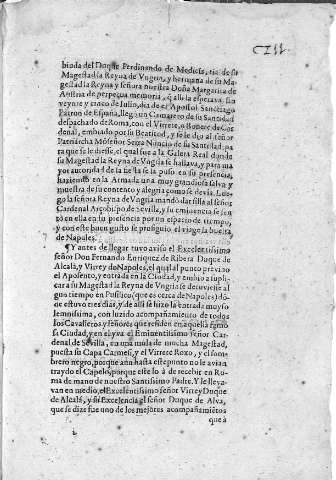 CZII
biuda del Duque Ferdinando de Medicis, tia de su
Magestad la Reyna de Vngria, y hermana de su Ma-
gestad la Reyna y señora nuestra Doña Margarita de
Austria de perpetua memoria, q̃ alli la esperava. En
veynte y cinco de Iulio, dia de el Apostol Santiago
Patron de España, llegò un Camarero de su Santidad
despachado de Roma, con el Virrete, o Bonete de Car
denal, embiado por su Beatitud, y se le dio al señor
Patriarcha Mõseñor Nuncio de su Santidad, pa
ra que se le diesse, el qual fue a la Galera Real donde
su Magestad la Reyna de Vngria se hallava, y para ma
yor autoridad de la fiesta se la puso en su presencia,
haziendo en la Armada una muy grandiosa salva y
muestra de su contento y alegria como se devia. Lue-
go la señora Reyna de Vngria mandò dar silla al señor
Cardenal Arçobispo de Sevilla, y su eminencia se sen
tò en ella en su presencia por un espacio de tiempo,
y con este buen gusto se prosiguio el viage la buelta
de Napoles.
¶ Y antes de llegar tuvo aviso el Excelentissimo
señor Don Fernando Enriquez de Ribera Duque de
Alcalà, y Virrey de Napoles, el qual al punto previno
el Aposento, y entrada en la Ciudad, y embio a supli-
car a su Magestad la Reyna de Vngria se detuviesse al
gun tiempo en (que es cerca de Napoles) dõ-
de estuvo tres dias, y de alli se hizo la entrada muy so-
lemnissima, con luzido acompañamiento de todos
los Cavalleros y señores que residen en aquella famo
sa Ciudad, y en el yva el Eminentissimo señor Car-
denal de Sevilla, en una mula de mucha Magestad,
puesta su Capa Carmesi, y el Virrete Roxo, y el som-
brero negro, porque aun hasta este punto no le avian
traydo el Capelo, porque este lo à de recebir en Ro-
ma de mano de nuestro Santissimo Padre. Y le lleva-
van en medio, el Excelentissimo señor Virrey Duque
de Alcalà, y su Excelencia el señor Duque de Alva,
que se dize fue uno de los mejores acompañamiẽtos
que à